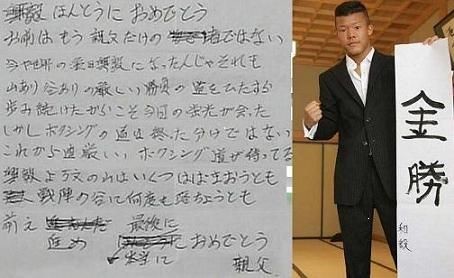 興毅 ほんとうに おめでとう
お前はもう親父だけの者ではない
今や世界の亀田興毅になったんじゃそれも
山あり谷ありの厳しい勝負の道をひたすら
歩み続けたからこそ今日の栄光が会った
しかしボクシングの道は終た分けではない
これから直厳しいボクシング道が待ってる
興毅よ万丈の山はいくつはばまおうとも
戦陣の谷に何度も落ちようとも
前え 最後に
進め おめでとう
本当に 親父
金勝
和毅